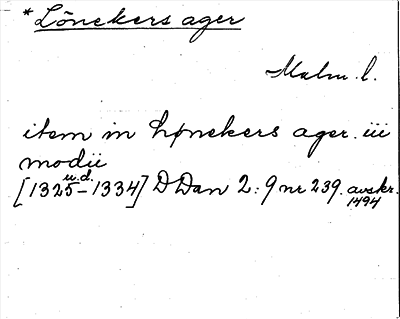 *Lönekers ager
Malm. l.
item in hønekers ager. iii
modii
u.d.
[1325-1334] DDan 2:9 nr 239. avskr.
1494